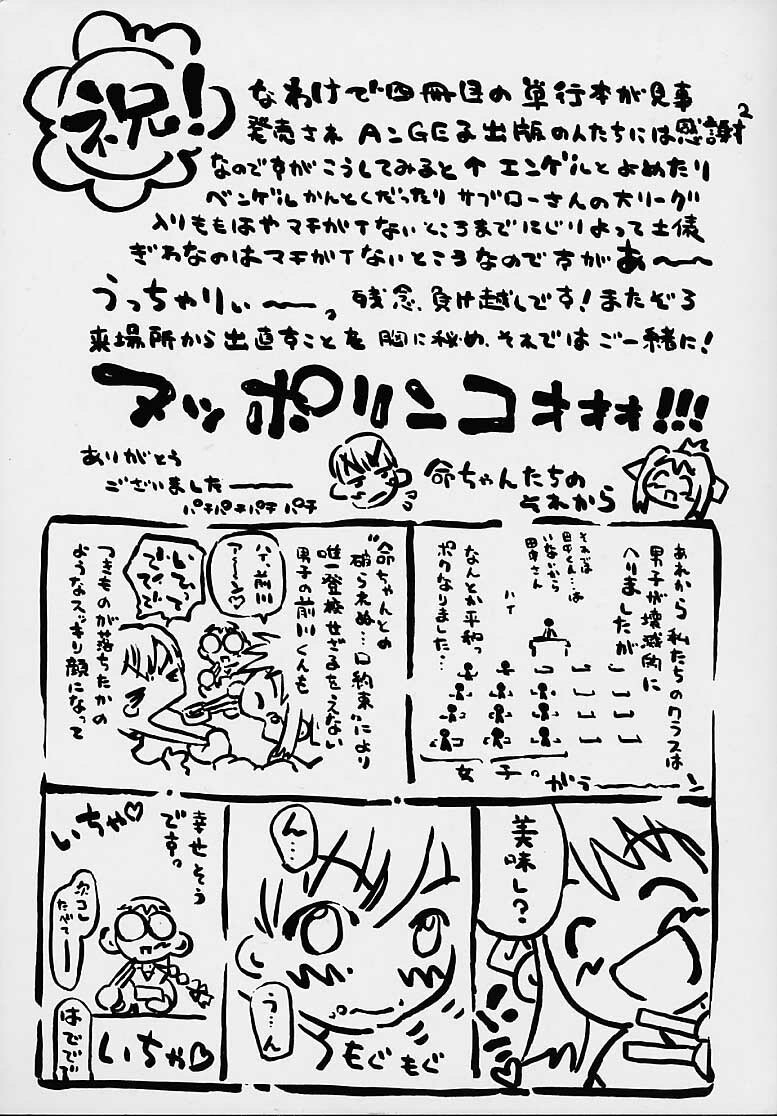 祝!
なわけで四冊目の単行本が見事
発売され AンGEる出版の人たちには感謝2
なのですがこうしてみると↑エンゲルとよめたり
ベンゲルかんとくだったり サブローさんの大リーグ
入りももはやマチガイないところまでにじりよって土俵
ぎわなのはマチガイないところなのですがあ〜〜
うっちゃりぃ〜〜っ 残念、負け越しです!またぞろ
来場所から出直すことを胸に秘め、それではご一緒に!
マッポリンコォォォ!!!
ありがとう
ございましたーー
パチパチパチパチ
命ちゃんたちの
それから
あれから私たちのクラスは
男子が壊滅的に
へりましたが
それでは
田中くん…は
いないから
田中さん
ハイ
なんとか平和っ
ポクなりました…
女子っ
がらーーーン
"命ちゃんとの
破られぬ…口約束"により
唯一登校せざるをえない
男子の前川くんも
ハイ、前川
アーーン♡
つきものが落ちたかの
ようなスッキリ顔になって
美味し?
ん…
う…ん
もぐもぐ
幸せそう
ですっ
いちゃ♡
次コレ
たべてーー
いちゃ♡
はででで